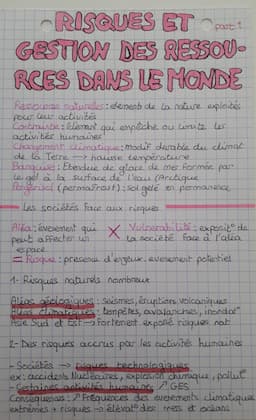 RISQUES ET
part 1
GESTION DES RESSOU-
RCES DANS LE MONDE
Ressources naturelles : élements de la nature exploités
pour leur activités
Contrainte : Élement qui empêche ou limite les
activités humaines
Changement climatique : modif durable du climat
de la Terre → hausse température
Banquise : Étendue de glace de mer formée par
le gel à la surface de l'eau (Arctique
Pergélisol (permafrost) : sol gelé en permanence
Les sociétés face aux risques
Aléa : évenement qui X Vulnérabilité : exposit° de
peut affecter un la société face à l'aléa
espace
= Risque : présence d'enjeux, évenement potentiel
1- Risques naturels nombreux
Aléas géologiques : séismes, éruptions volcaniques
Aléas climatiques : tempêtes, avalanches, inondat°
Asie Sud et Est → fortement exposé risques nat
2- Des risques accrus par les activités humaines
- Sociétés → risques technologiques
ex : accidents Nucléaires, explosio chimique, pollut°
- Certaines activités humaines ↗ GES
Conséquences : ↗ Fréquences des évenements climatiques
extrêmes + risques → élévat° des mers et océans